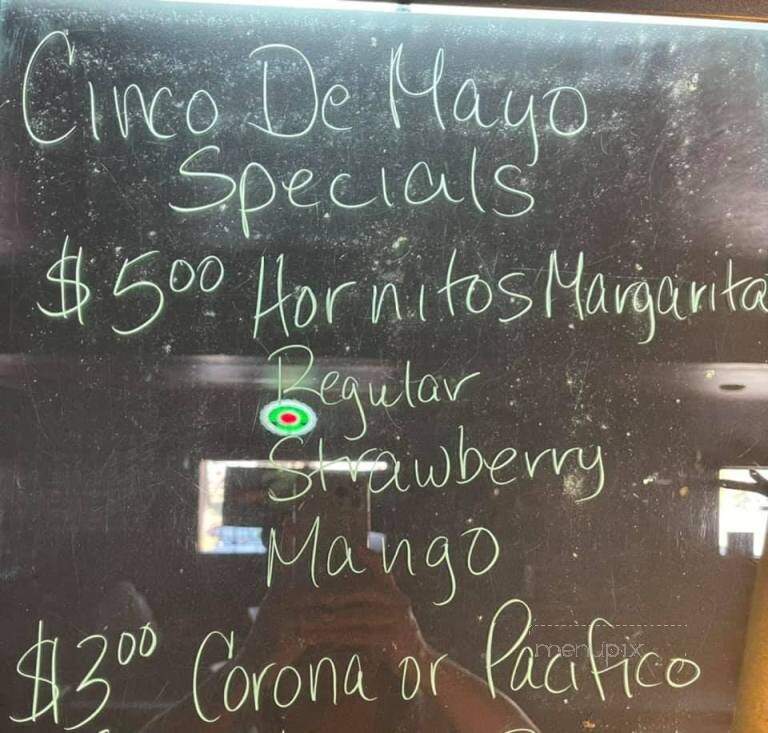 Cinco De Mayo
Specials
$5.00 Hornitos Margarita
Regular
Strawberry
Mango
menupix
$3.00 Corona or Pacifico